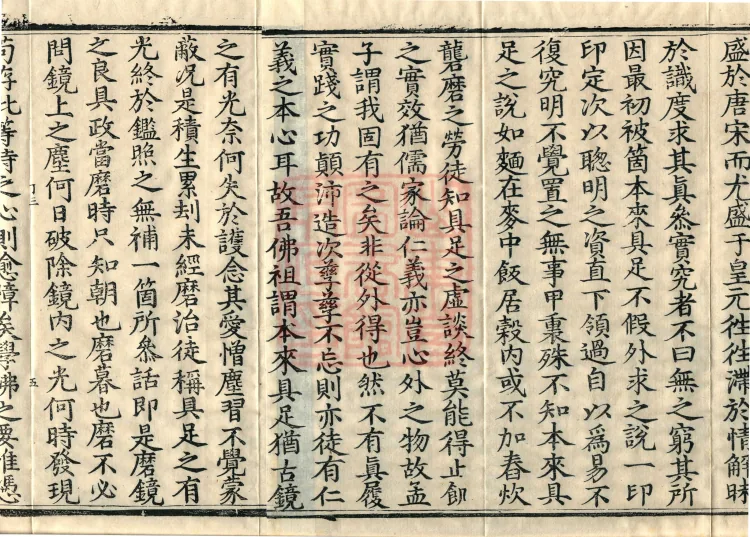 盛於唐宋而尤盛于皇元徃徃滯於情解昧
於識度求其真叅實究者不曰無之窮其所
因最初被箇本來具足不假外求之說一印
印定次以聰明之資直下領過自以爲易不
復究明不覺置之無事甲裏殊不知本來具
足之說如麵在麥中飯居糓內或不加舂炊
礱磨之勞徒知具足之虛談終莫能得止飢
之實效猶儒家論仁義亦豈心外之物故孟
子謂我固有之矣非從外得也然不有真履
實踐之功顛沛造次孳孳不忘則亦徒有仁
義之本心耳故吾佛祖謂本來具足猶古鏡
之有光奈何失於護念其愛憎塵習不覺蒙
蔽况是積生累刦未經磨治徒稱具足之有
光終於鑑照之無補一箇所叅話即是磨鏡
之良具政當磨時只知朝也磨暮也磨不必
問鏡上之塵何日破除鏡內之光何時發現
苟存此等待之心則愈障矣學佛之要惟憑
五